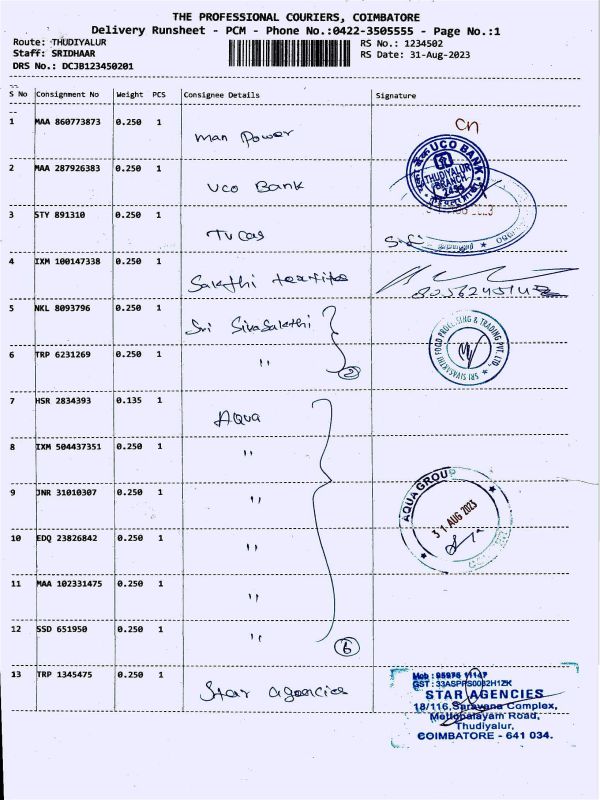 THE PROFESSIONAL COURIERS, COIMBATORE
Delivery Runsheet - PCM - Phone No.:0422-3505555 - Page No.:1
Route: THUDIYALUR
Staff: SRIDHAAR
DRS No.: DCJB123450201
RS No.: 1234502
RS Date: 31-Aug-2023
S No Consignment No Weight PCS Consignee Details Signature
1 MAA 860773873 0.250 1 Man Power
cn
2 MAA 287926383 0.250 1 Uco Bank
UCO BANK
THUDIYALUR
BRANCH
3 STY 891310 0.250 1 Tucas
4 IXM 100147338 0.250 1 Sakthi
5 NKL 8093796 0.250 1 Sri Sivasakthi
6 TRP 6231269 0.250 1 "
2
SRI SIVASAKTHI FOOD PROCESSING & TRADING PVT. LTD.
7 HSR 2834393 0.135 1 Aqua
8 IXM 504437351 0.250 1 "
9 JNR 31010307 0.250 1 "
AQUA GROUP
31 AUG 2023
10 EDQ 23826842 0.250 1 "
11 MAA 102331475 0.250 1 "
12 SSD 651950 0.250 1 "
6
13 TRP 1345475 0.250 1 Star agencies
Mob : 95976 11147
STAR AGENCIES
18/116, Saravana Complex,
Mettupalayam Road,
Thudiyalur,
COIMBATORE - 641 034.